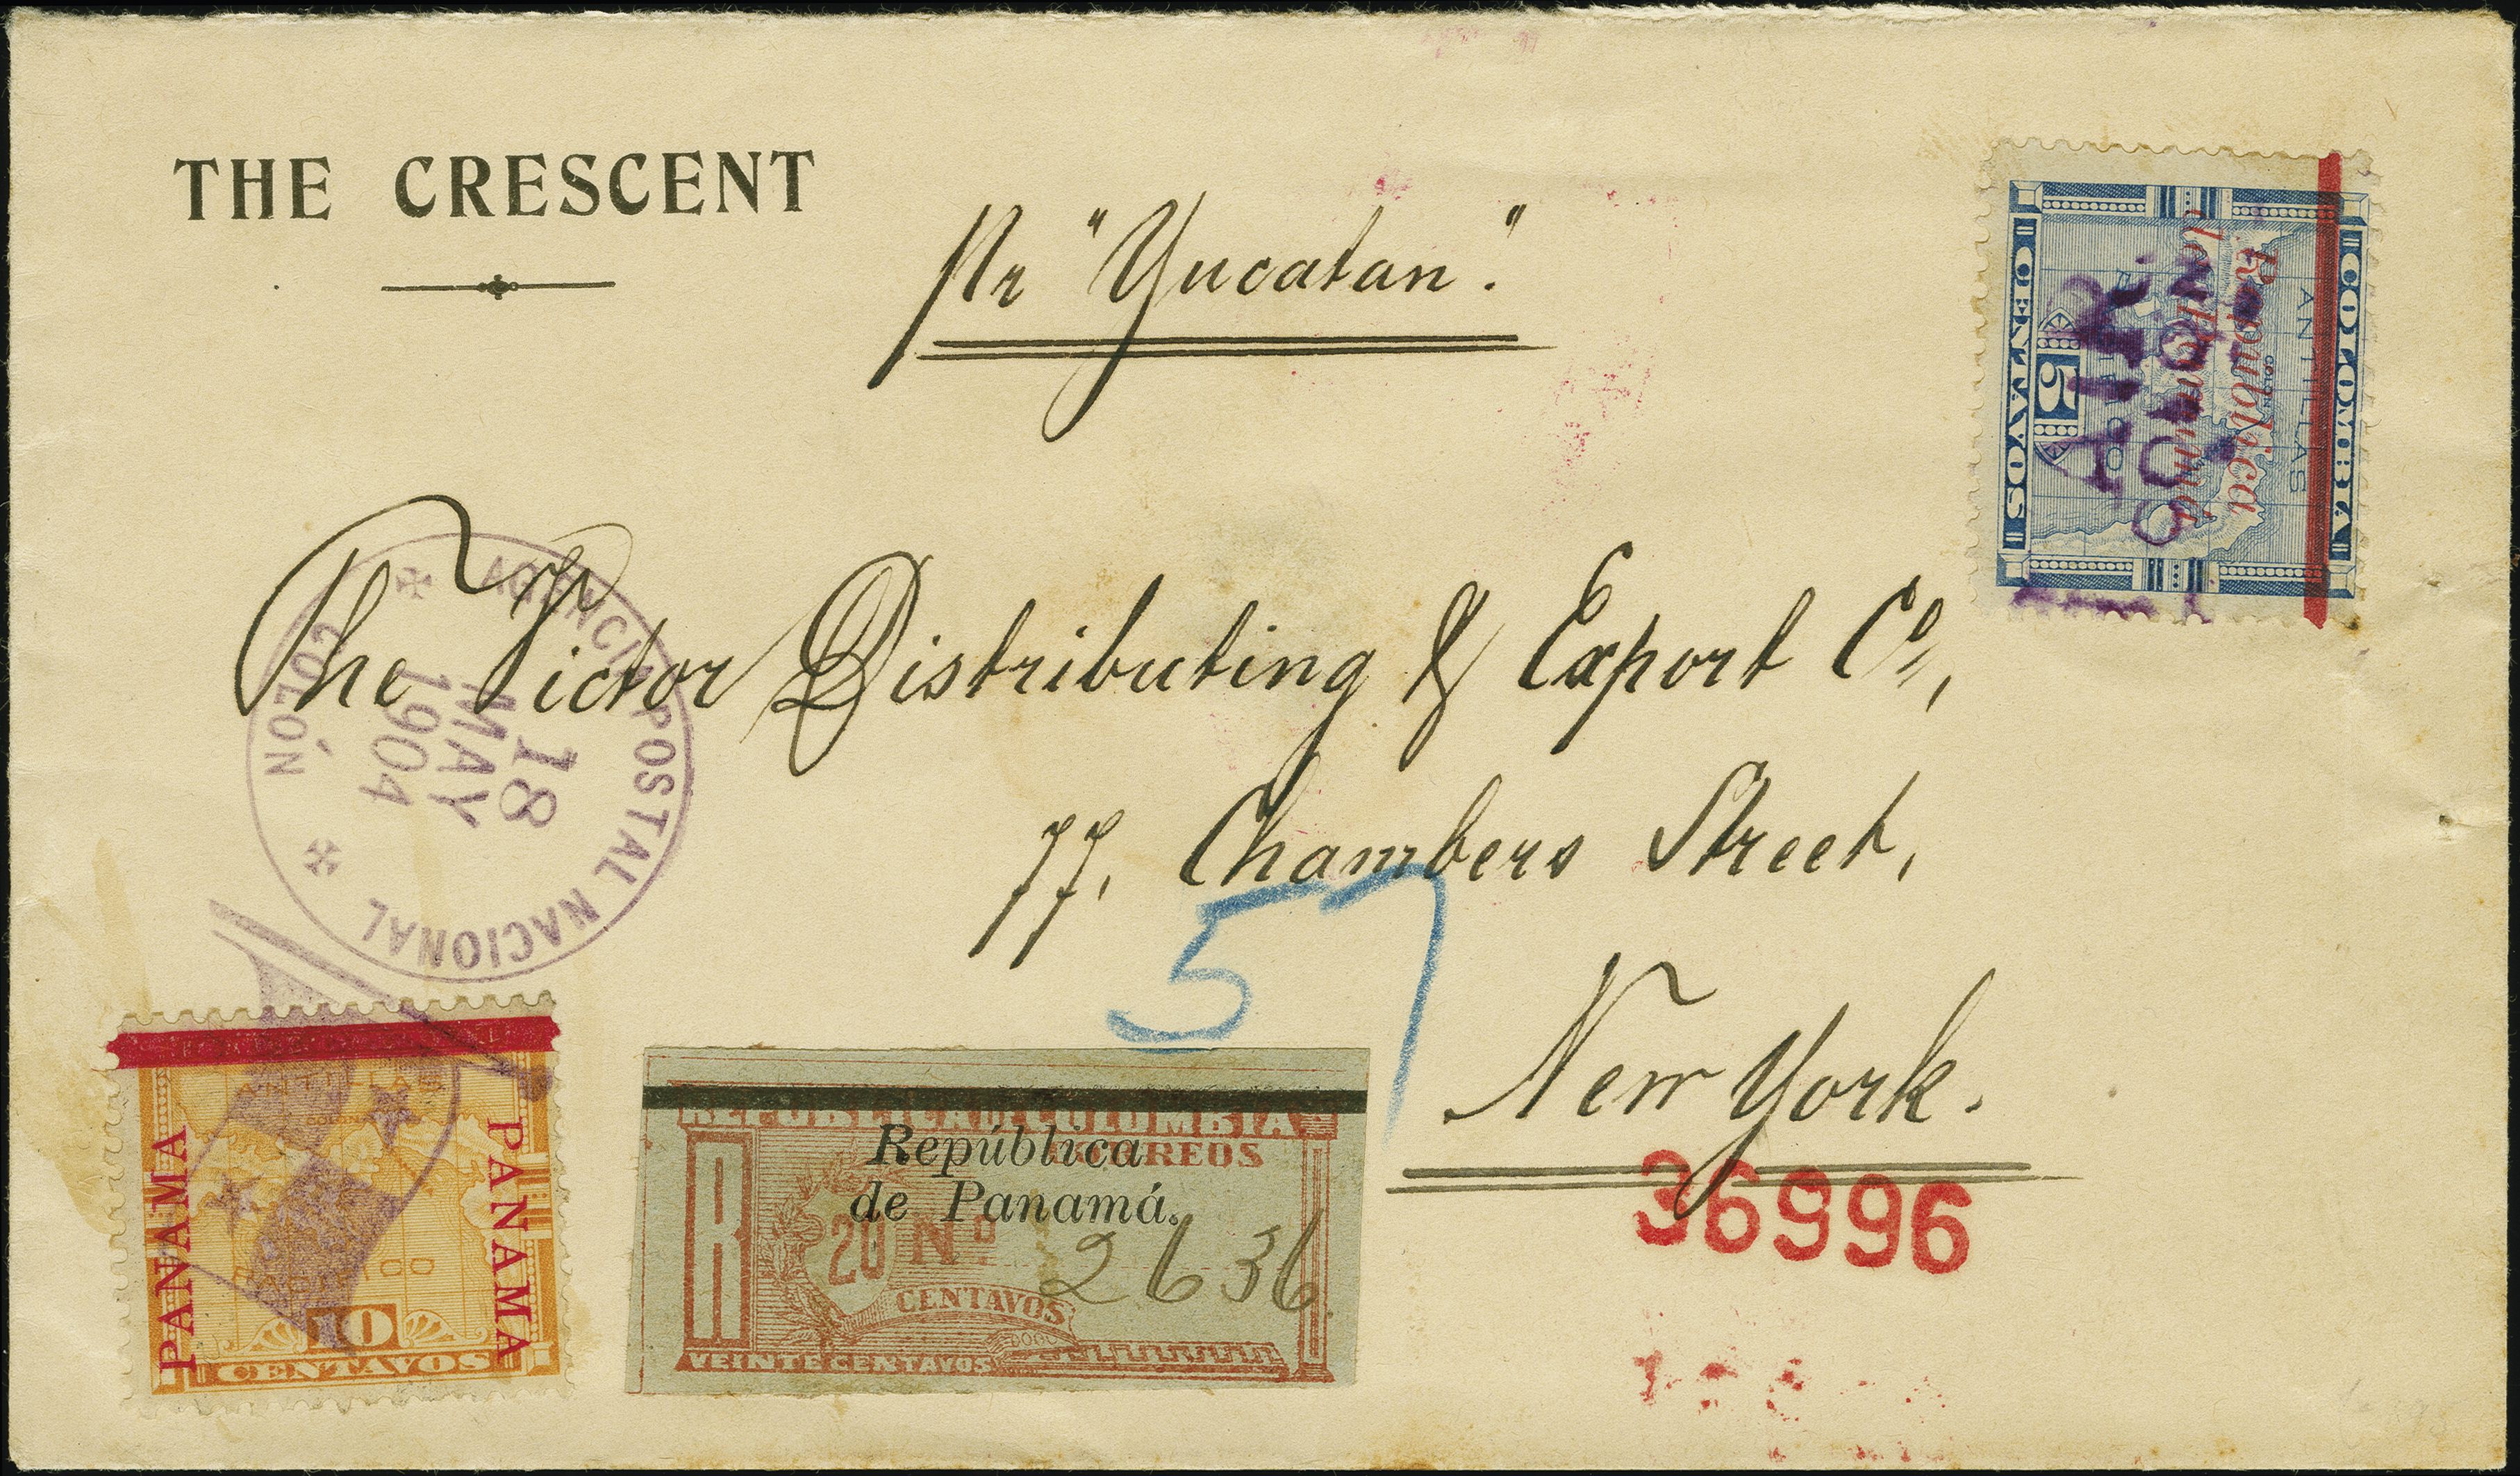 THE CRESCENT
Pr "Yucatan".
COLOMBIA
ANTILLAS
República
de Panamá
COLON
A.R.
COLON
5
CENTAVOS
The Victor Distributing & Export Co,
77, Chambers Street,
New York.
AGENCIA POSTAL NACIONAL
COLÓN
18
MAY
1904
57
36996
ANTILLAS
COLON
PANAMA
PANAMA
PACIFICO
10
CENTAVOS
REPUBLICA DE COLOMBIA
CORREOS
República
de Panamá.
R
20 No 2636
CENTAVOS
VEINTE CENTAVOS